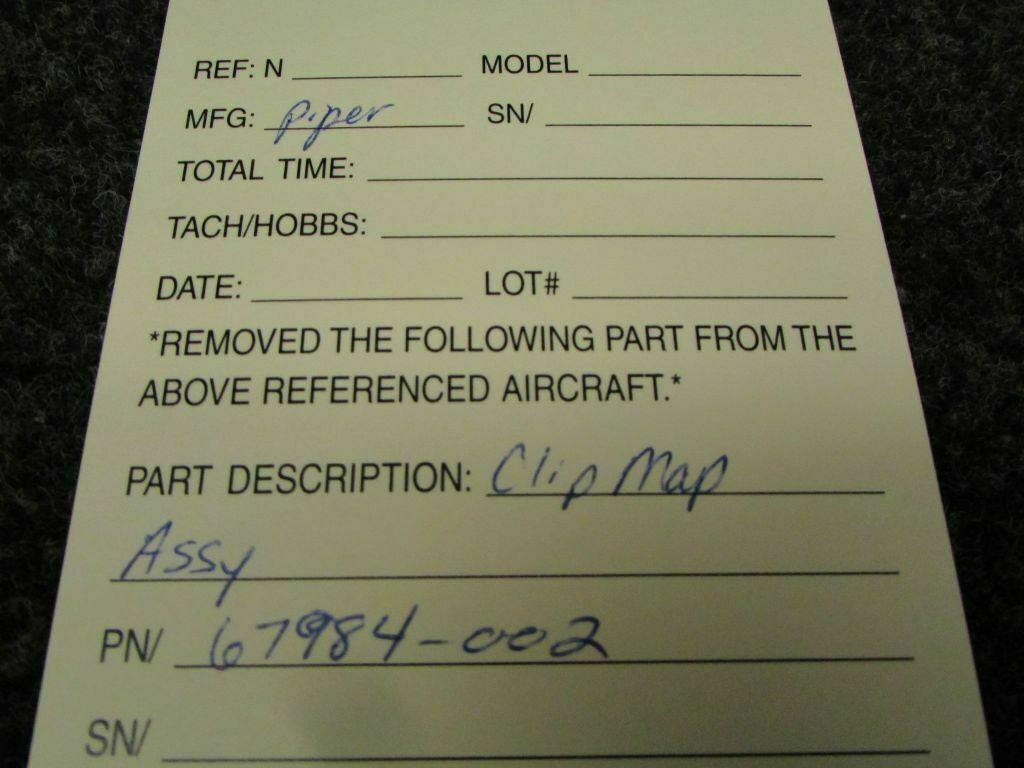 REF: N MODEL
MFG: Piper SN/
TOTAL TIME:
TACH/HOBBS:
DATE: LOT#
*REMOVED THE FOLLOWING PART FROM THE
ABOVE REFERENCED AIRCRAFT.*
PART DESCRIPTION: Clip Map
Assy
PN/ 67984-002
SN/